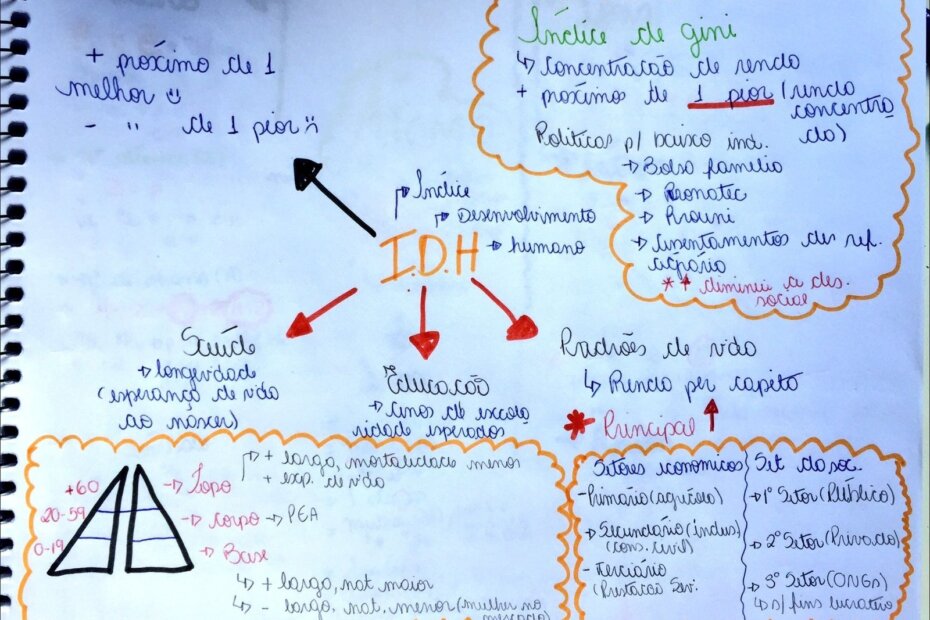 + próximo de 1
melhor
- " de 1 pior
Índice de gini
↳ Concentracão de renda
+ proximos de 1 pior (renda
concentra
da)
Politicas p/ baixo ind.
→ Bolsa familia
→ Pronatec
→ Prouni
→ assentamentos da ref.
agrária
** diminui a des.
social
→ Índice
→ Desenvolvimento
→ humano
I.D.H
Saúde
→ longevidade
(esperança de vida
ao nascer)
Educacão
→ anos de escola
ridade esperados
Padrões de vida
↳ Renda per capita
* Principal ↑
+60
20-59
0-19
→ Topo
→ + largo, mortalidade menor
+ exp. de vida
→ corpo → PEA
→ Base
↳ + largo, nat. maior
↳ - largo, nat. menor (mulher no
mercado)
Setores economicos
- Primário (agrícola)
→ Secundário (indus)
(cons. civil)
- Terciário
(Prestacão Ser.
Set. da soc.
→ 1º Setor (Público)
→ 2º Setor (Privado)
→ 3º Setor (ONGs)
↳ s/ fins lucrativo